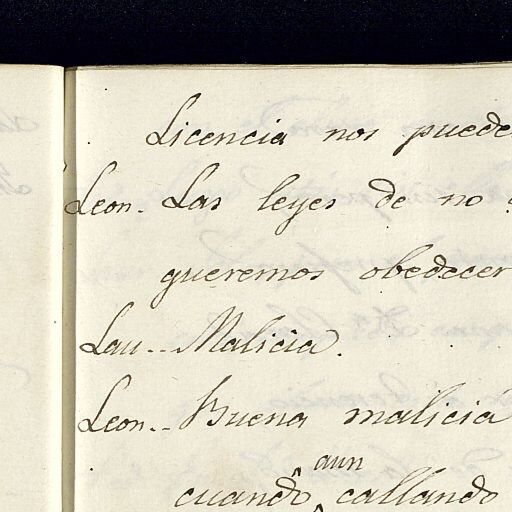 Licencia nos puede
Leon. Las leyes de no
queremos obedecer
Lau.. Malicia.
Leon.. Buena malicia
aun
cuando callando